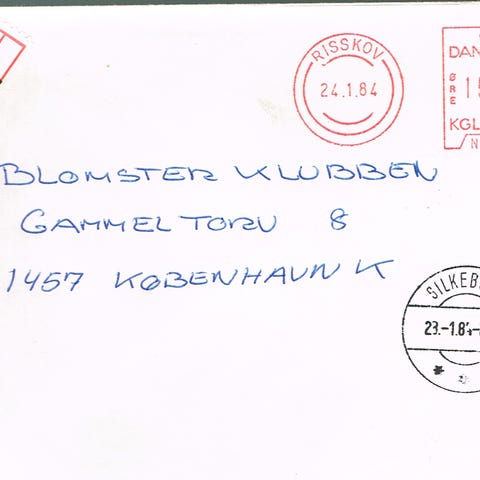 RISSKOV
24.1.84
DAN
ØRE 15
KGL
N
BLOMSTER KLUBBEN
GAMMEL TORV 8
1457 KØBENHAVN K
SILKEB
23.-1.84-